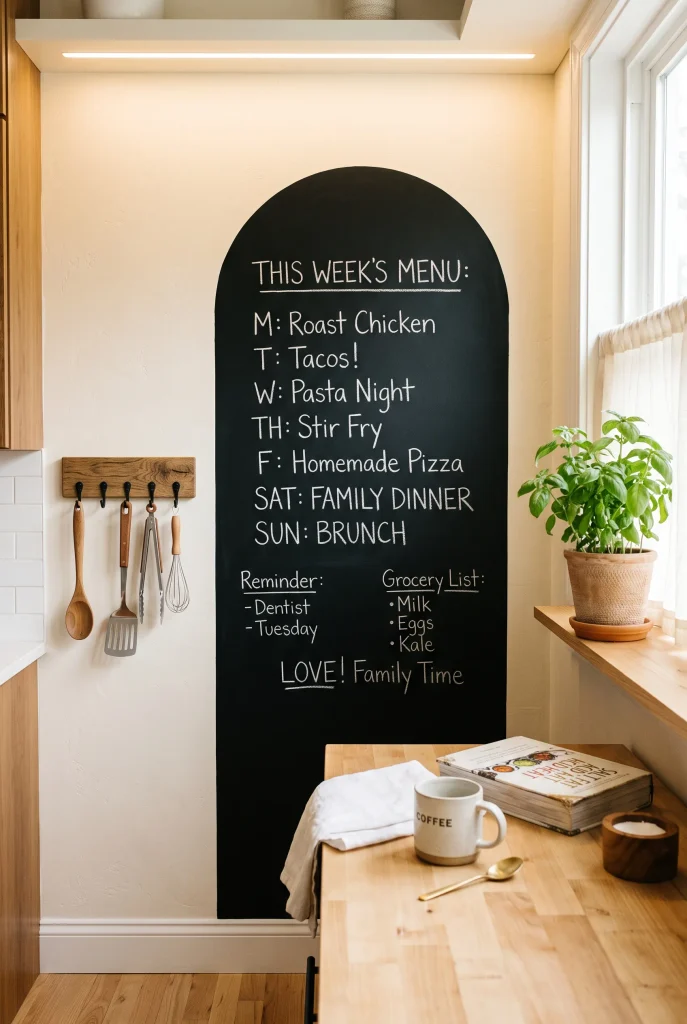 THIS WEEK'S MENU:
M: Roast Chicken
T: Tacos!
W: Pasta Night
TH: Stir Fry
F: Homemade Pizza
SAT: FAMILY DINNER
SUN: BRUNCH
Reminder:
- Dentist
- Tuesday
Grocery List:
• Milk
• Eggs
• Kale
LOVE! Family Time
COFFEE